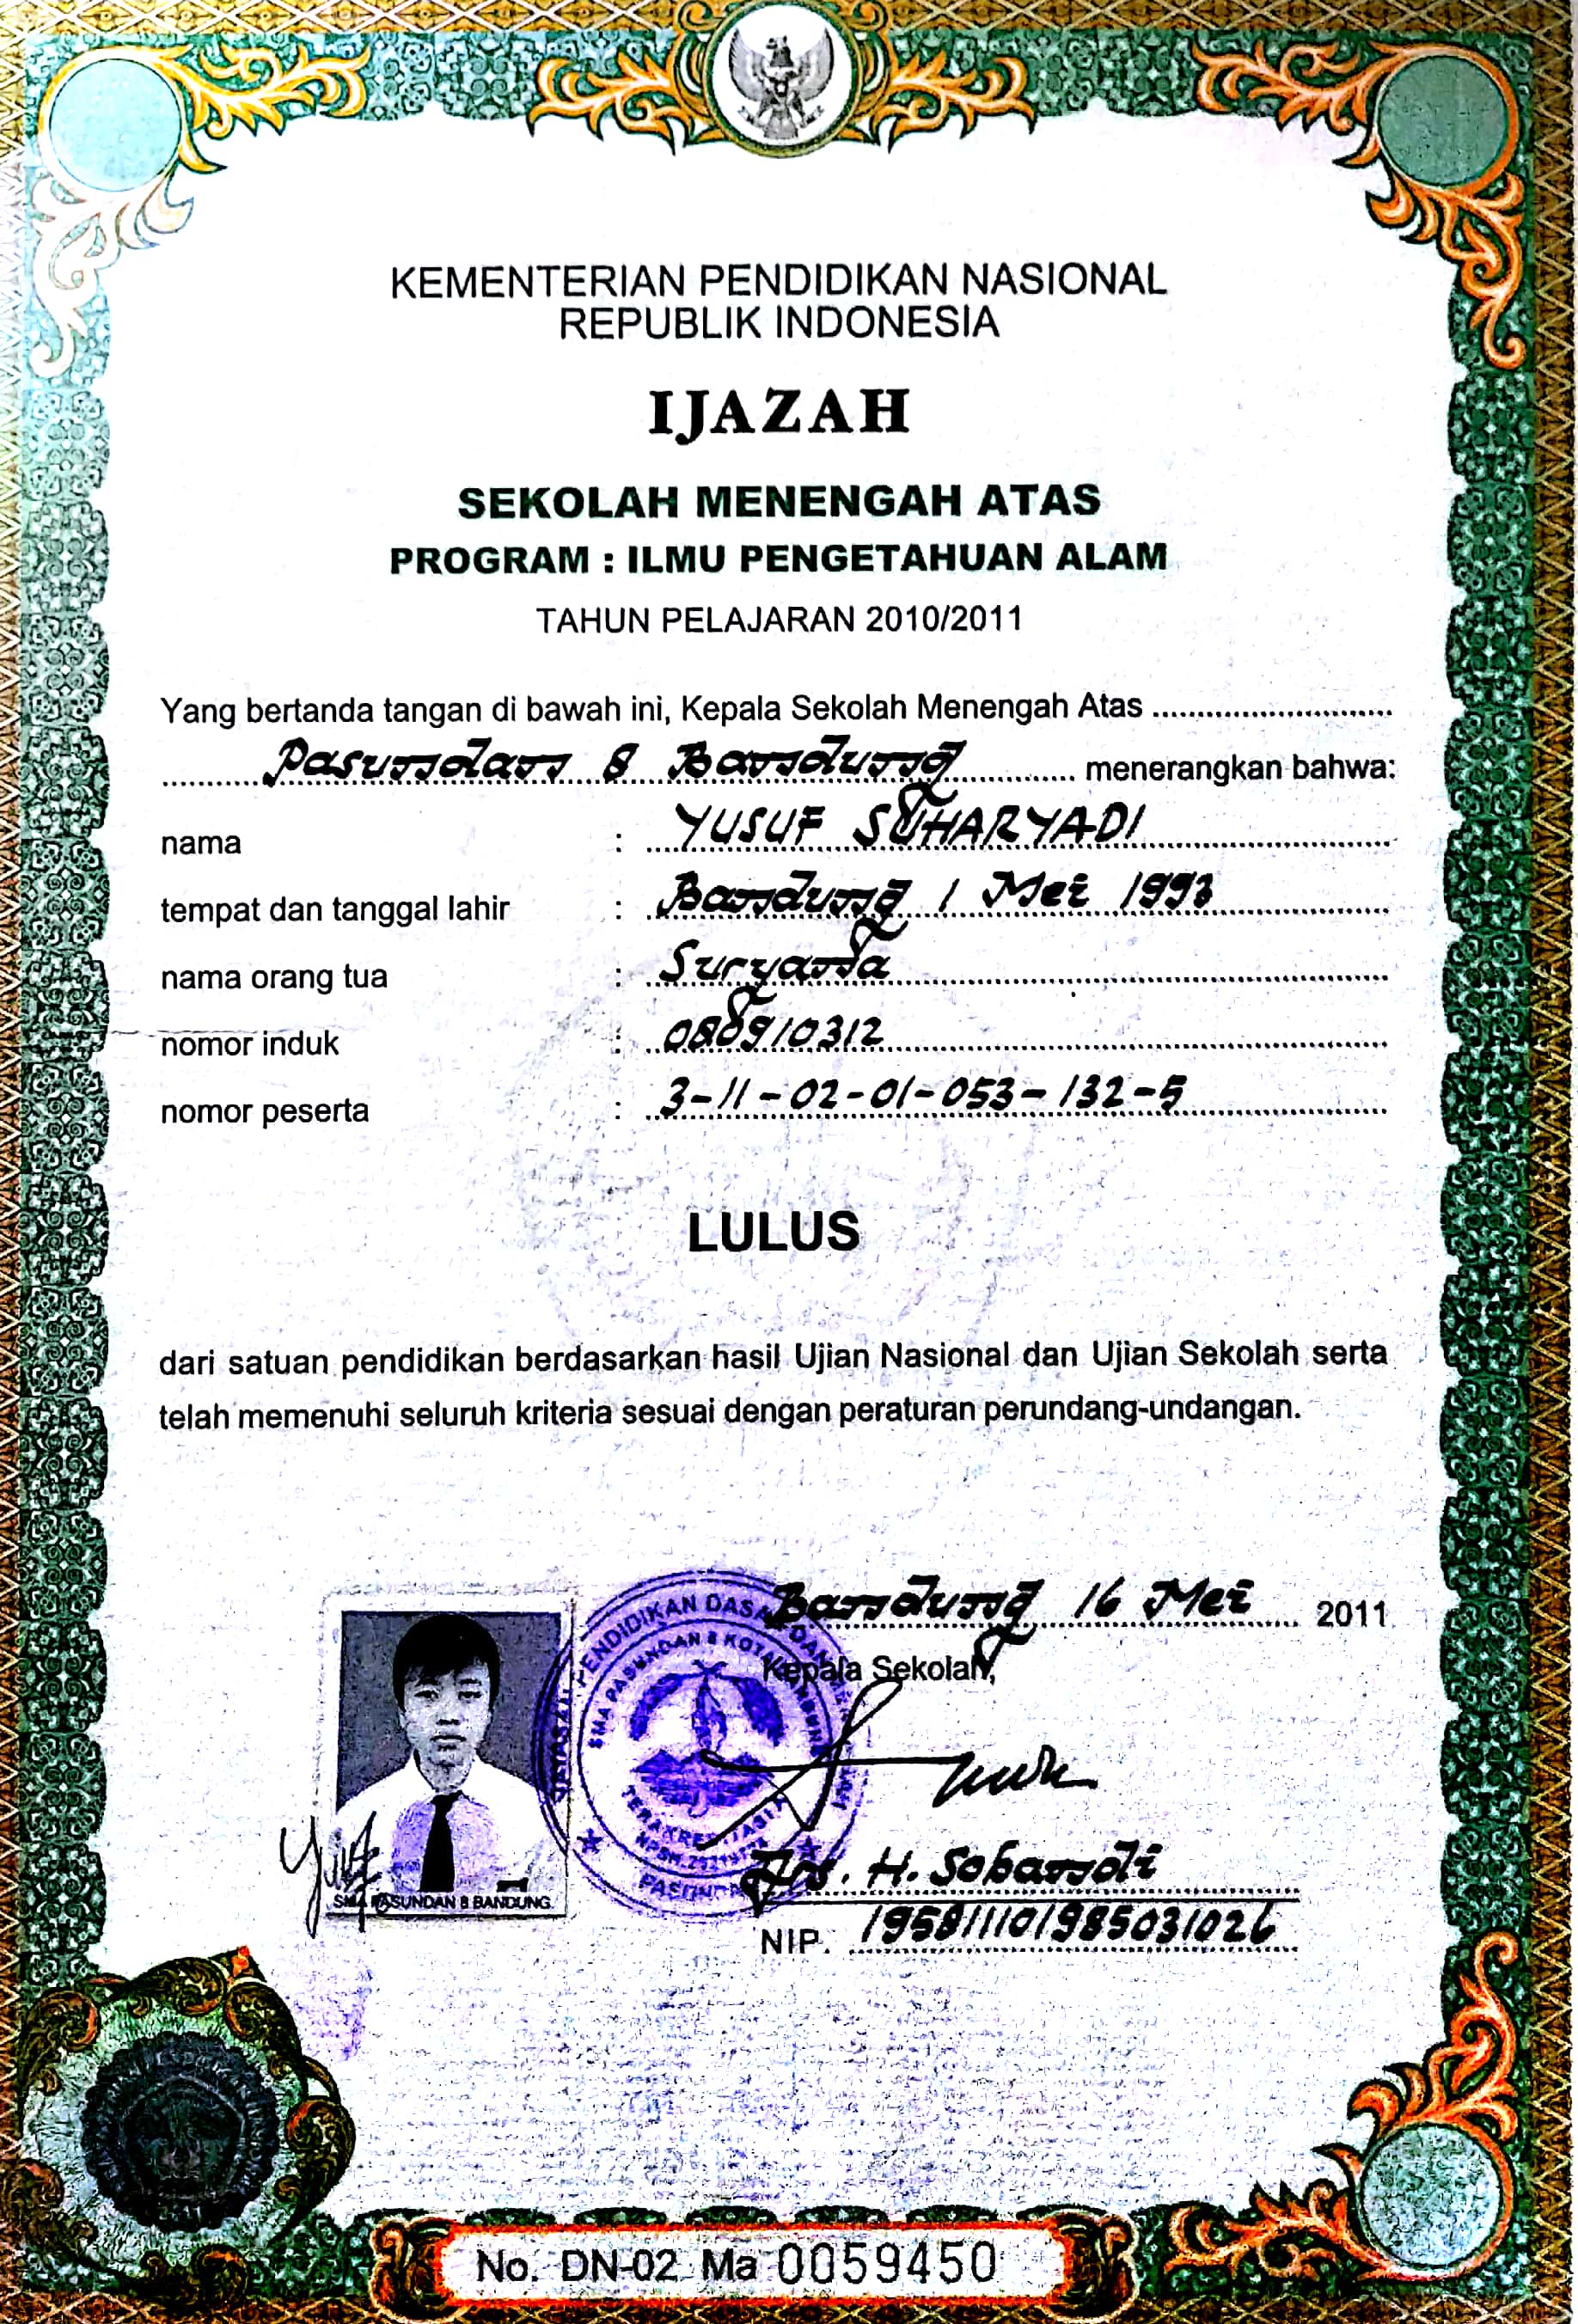 KEMENTERIAN PENDIDIKAN NASIONAL
REPUBLIK INDONESIA
IJAZAH
SEKOLAH MENENGAH ATAS
PROGRAM : ILMU PENGETAHUAN ALAM
TAHUN PELAJARAN 2010/2011
Yang bertanda tangan di bawah ini, Kepala Sekolah Menengah Atas
Pasundan 8 Bandung menerangkan bahwa:
nama : YUSUF SUHARYADI
tempat dan tanggal lahir : Bandung 1 Mei 1993
nama orang tua : Suryana
nomor induk : 080910312
nomor peserta : 3-11-02-01-053-132-5
LULUS
dari satuan pendidikan berdasarkan hasil Ujian Nasional dan Ujian Sekolah serta
telah memenuhi seluruh kriteria sesuai dengan peraturan perundang-undangan.
Bandung 16 Mei 2011
Kepala Sekolah,
YAYASAN PENDIDIKAN DASAR DAN
SMA PASUNDAN 8 KOTA BANDUNG
PASUNDAN
SMA PASUNDAN 8 BANDUNG
Drs. H. Sobandi
NIP. 195811101985031026
No. DN-02 Ma 0059450